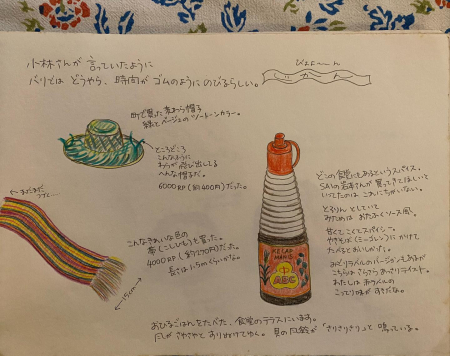 小林さんが 言っていたように
バリとは どうやら、時間が ゴムのようにのびるらしい。
じかん
町で買った 麦わら帽子
緑とベージュの ツートーンカラー。
ところどころ
こんなように
わらが 飛び出してる
へんな帽子だ。
6000RP (約400円)だった。
まだまだ
つづく…
こんなきれいな色の
帯(こしひも)を買った。
4000RP (約270円)だった。
長さは1.5mくらいかな。
15cm
KECAP
MANIS
ABC
どこの食堂にもあるというスパイス。
いてたのは これにちがいない。
とろりんとしていて
みためは おたふくソース風。
甘くてこくてスパイシー。
やきそば(ミーゴレン)に かけて
たべるとおいしかった。
みどりラベルのバージョンもあるが
こちらは さらさら
わたしは 赤ラベルの
こってり味がすきだな。
おひるごはんをたべた、食堂のテラスにいます。
風がさやさやと ゆく。貝の風鈴が「さりさりさり」と 鳴っている。